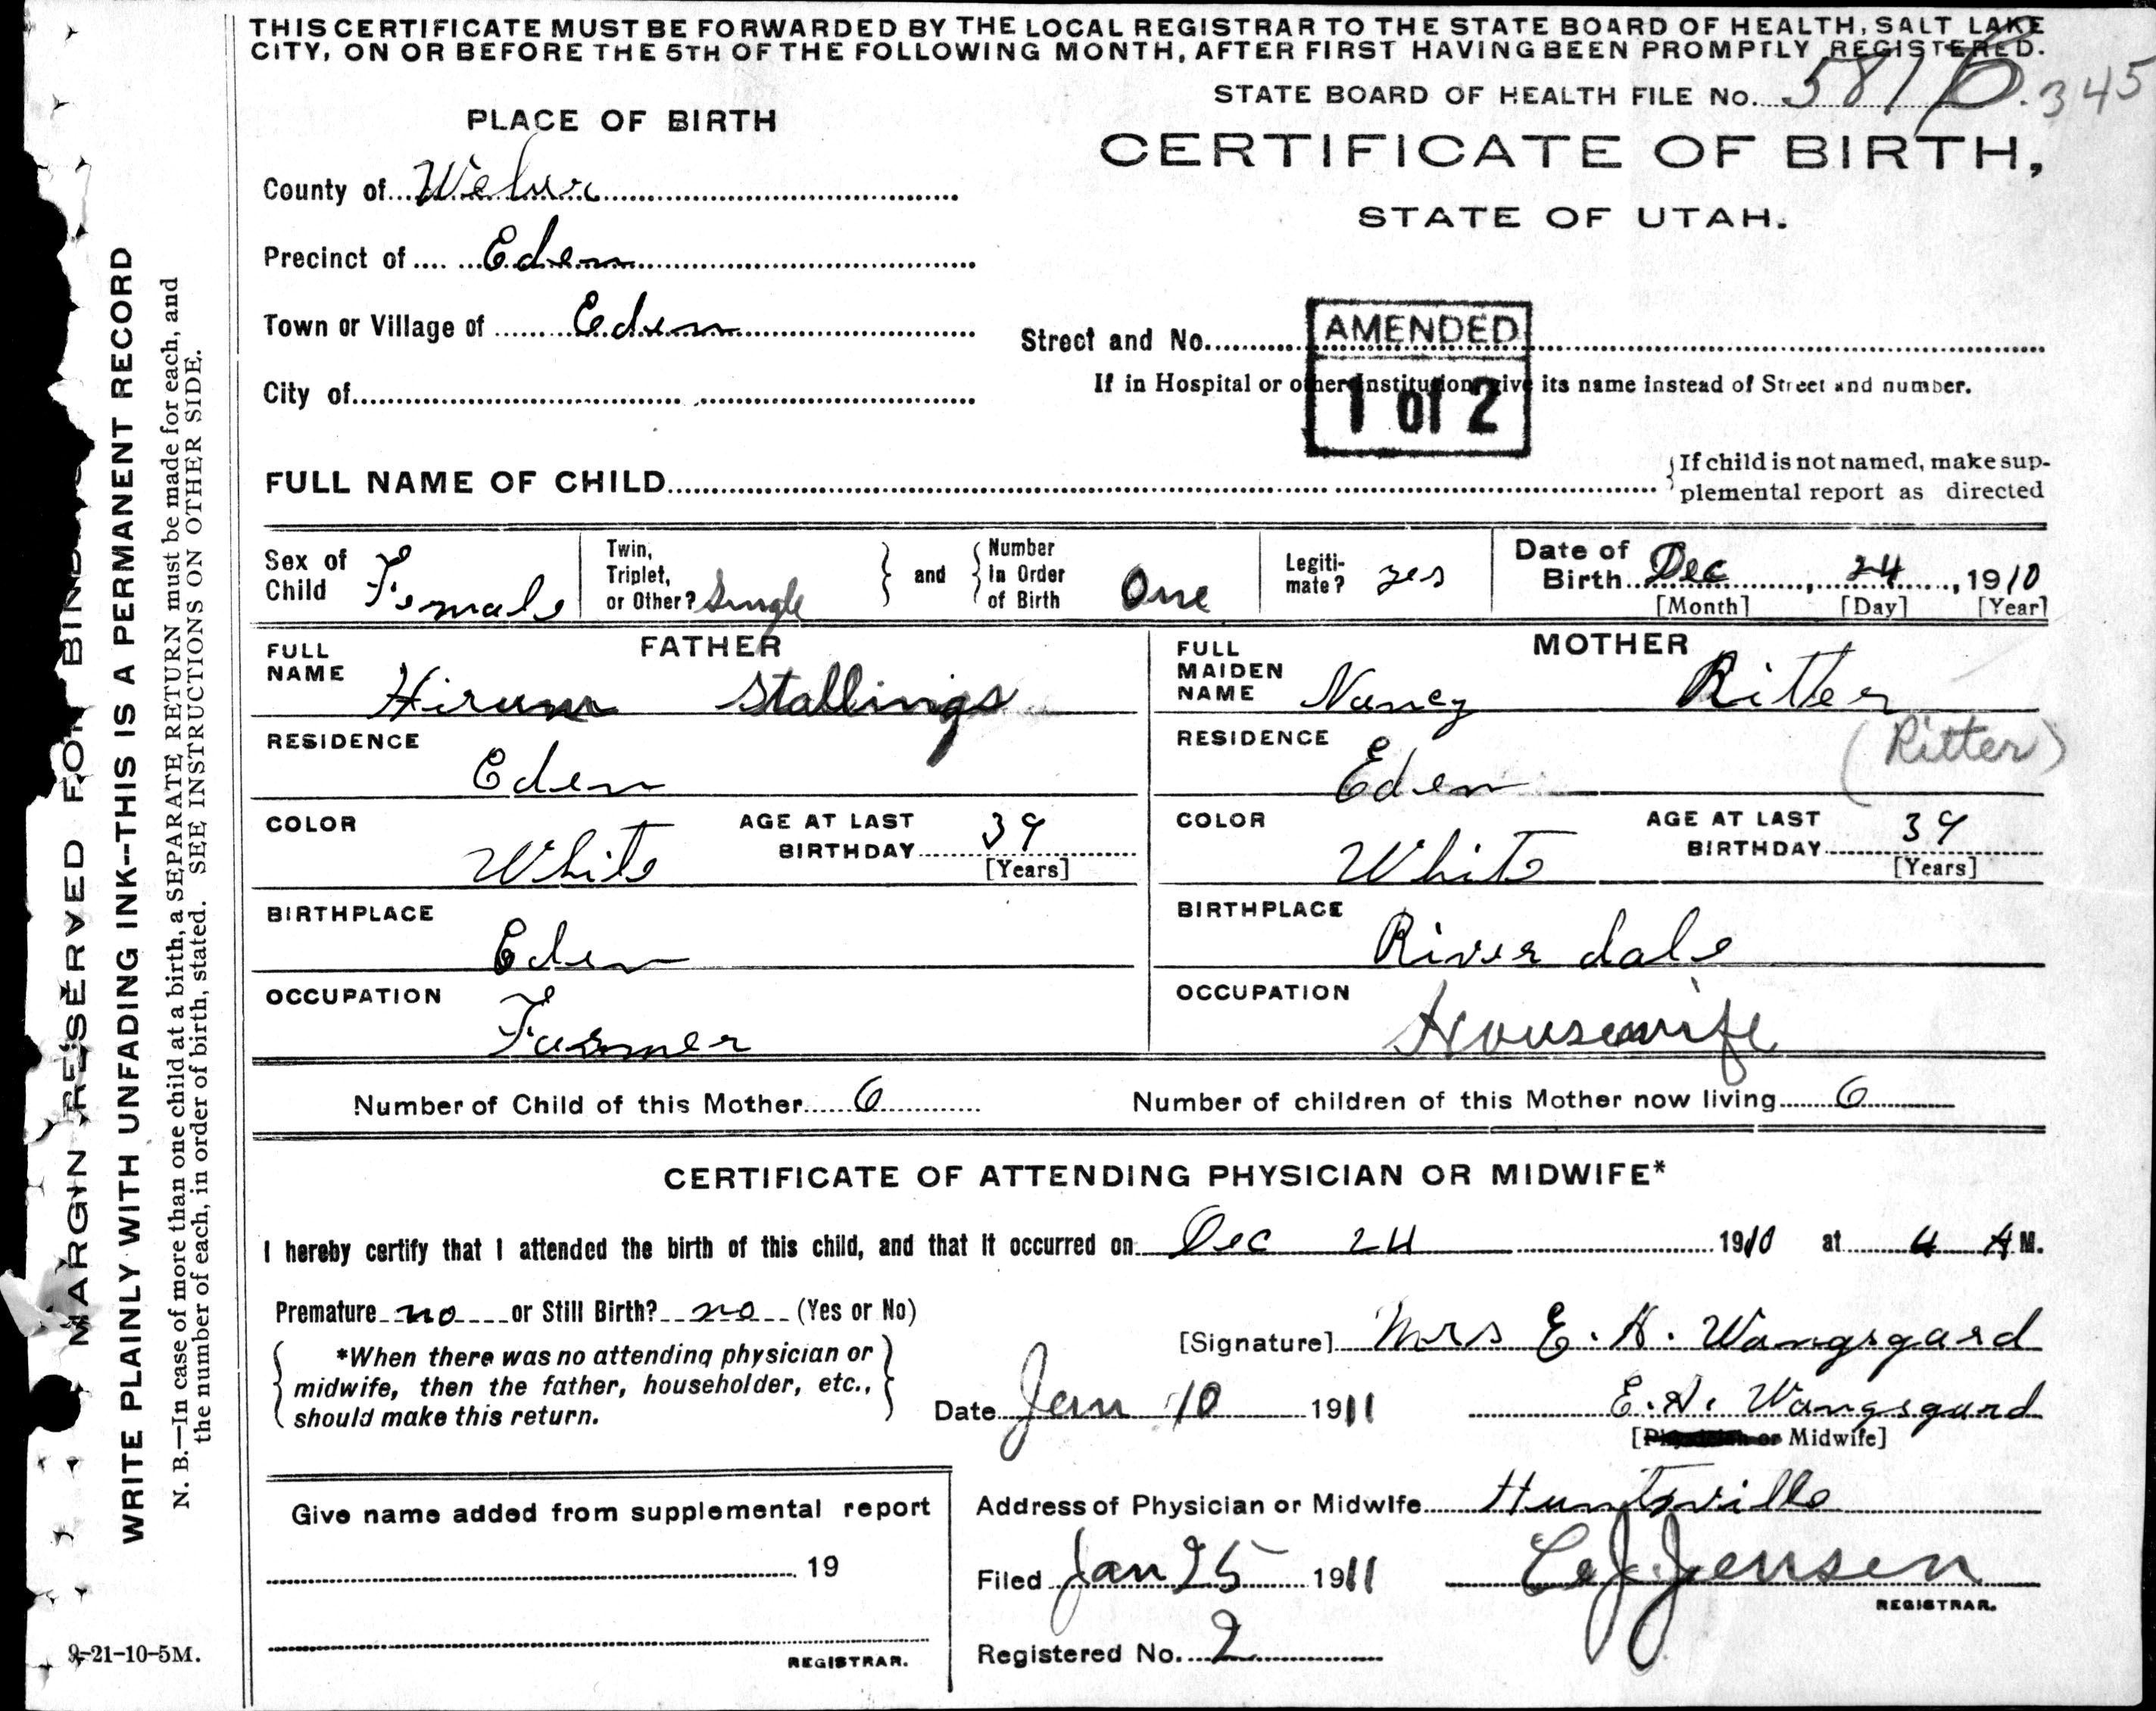 THIS CERTIFICATE MUST BE FORWARDED BY THE LOCAL REGISTRAR TO THE STATE BOARD OF HEALTH, SALT LAKE
CITY, ON OR BEFORE THE 5TH OF THE FOLLOWING MONTH, AFTER FIRST HAVING BEEN PROMPTLY REGISTERED.
STATE BOARD OF HEALTH FILE No. 581 345
PLACE OF BIRTH
CERTIFICATE OF BIRTH,
STATE OF UTAH.
County of Weber
Precinct of Eden
Town or Village of Eden
Street and No.
AMENDED
1 of 2
City of
If in Hospital or other Institution, give its name instead of Street and number.
FULL NAME OF CHILD
If child is not named, make sup-
plemental report as directed
Sex of Child Female
Twin, Triplet, or Other? Single
and
Number in Order of Birth One
Legiti-mate? yes
Date of Birth Dec, 24, 1910
[Month] [Day] [Year]
FATHER
FULL NAME Hirum Stallings
RESIDENCE Eden
COLOR White
AGE AT LAST BIRTHDAY 39
[Years]
BIRTHPLACE Eden
OCCUPATION Farmer
MOTHER
FULL MAIDEN NAME Nancy Ritter
(Ritter)
RESIDENCE Eden
COLOR White
AGE AT LAST BIRTHDAY 39
[Years]
BIRTHPLACE River dale
OCCUPATION Housewife
Number of Child of this Mother 6
Number of children of this Mother now living 6
CERTIFICATE OF ATTENDING PHYSICIAN OR MIDWIFE*
I hereby certify that I attended the birth of this child, and that it occurred on Dec 24 1910 at 4 A M.
Premature no or Still Birth? no (Yes or No)
*When there was no attending physician or
midwife, then the father, householder, etc.,
should make this return.
[Signature] Mrs E. H. Wangsgard
Date Jan 10 1911
E. H. Wangsgard
[Physician or Midwife]
Give name added from supplemental report
19
REGISTRAR.
Address of Physician or Midwife Huntsville
Filed Jan 25 1911
Jensen
REGISTRAR.
Registered No. 2
MARGIN RESERVED FOR
WRITE PLAINLY WITH UNFADING INK--THIS IS A PERMANENT RECORD
N. B.—In case of more than one child at a birth, a SEPARATE RETURN must be made for each, and
the number of each, in order of birth, stated. SEE INSTRUCTIONS ON OTHER SIDE.
9-21-10-5M.